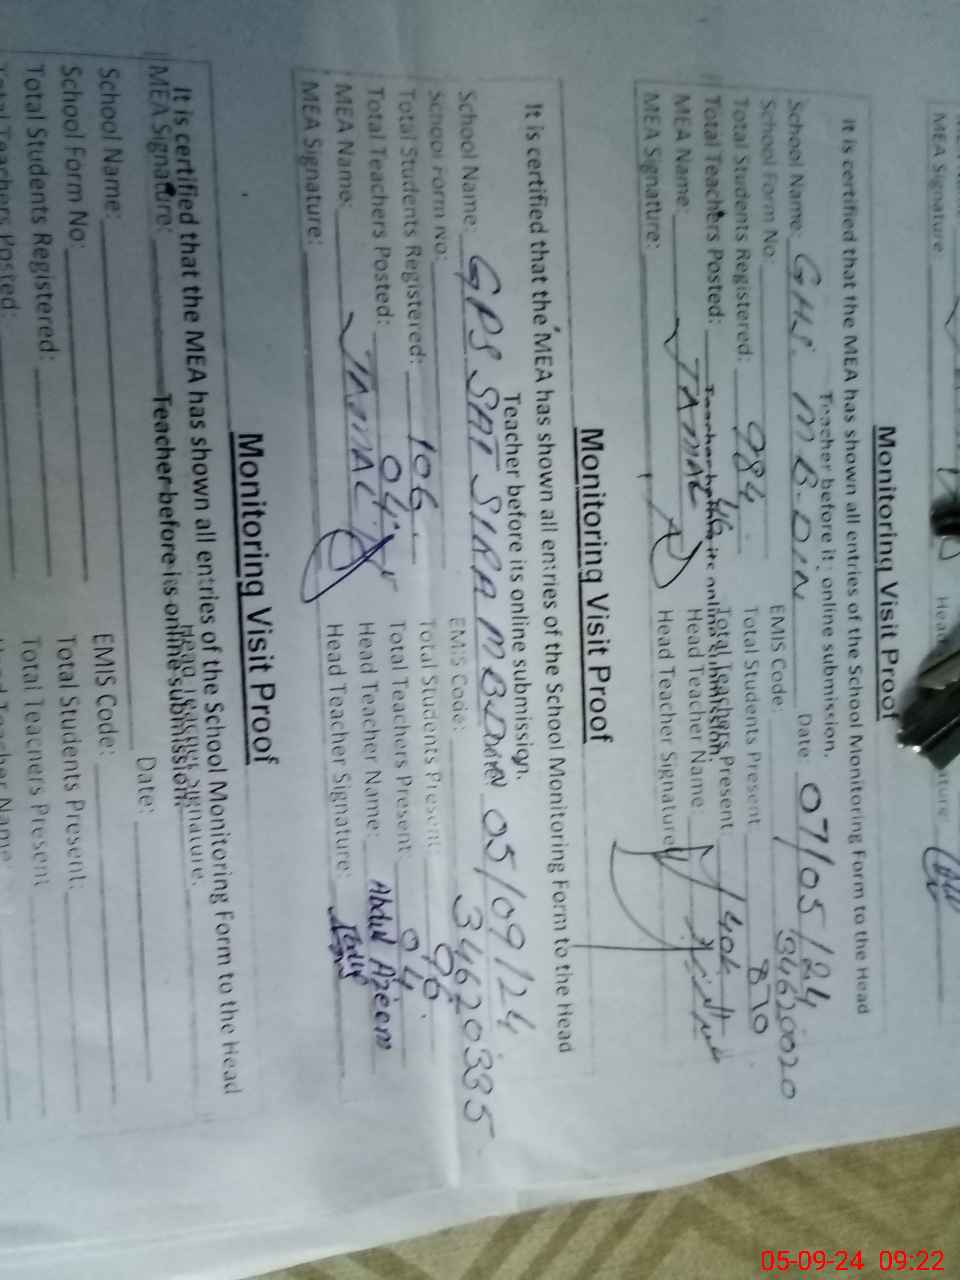 MEA Signature
Monitoring Visit Proof
It is certified that the MEA has shown all entries of the School Monitoring Form to the Head
Teacher before it; online submission.
School Name: GHS. M B-DIN Date: 07/05/24
School Form No: EMIS Code: 34620020
Total Students Registered: 984 Total Students Present 870
Total Teachers Posted: 46 Total Teachers Present
MEA Name: JAMAL Head Teacher Name:
MEA Signature: Head Teacher Signature
Monitoring Visit Proof
It is certified that the MEA has shown all entries of the School Monitoring Form to the Head
Teacher before its online submission.
School Name: GPS SAT SIRA M B Din 05/09/24
School Form No: EMIS Code: 34620335
Total Students Registered: 106 Total Students Present: 90
Total Teachers Posted: 04 Total Teachers Present: 04
MEA Name: JAMAL Head Teacher Name: Abdul Azeem
MEA Signature: Head Teacher Signature:
Monitoring Visit Proof
It is certified that the MEA has shown all entries of the School Monitoring Form to the Head
Teacher before its online submission.
MEA Signature: Head Teacher Signature:
School Name: Date:
School Form No: EMIS Code:
Total Students Registered: Total Students Present:
Total Teachers Posted: Total Teachers Present
05-09-24 09:22